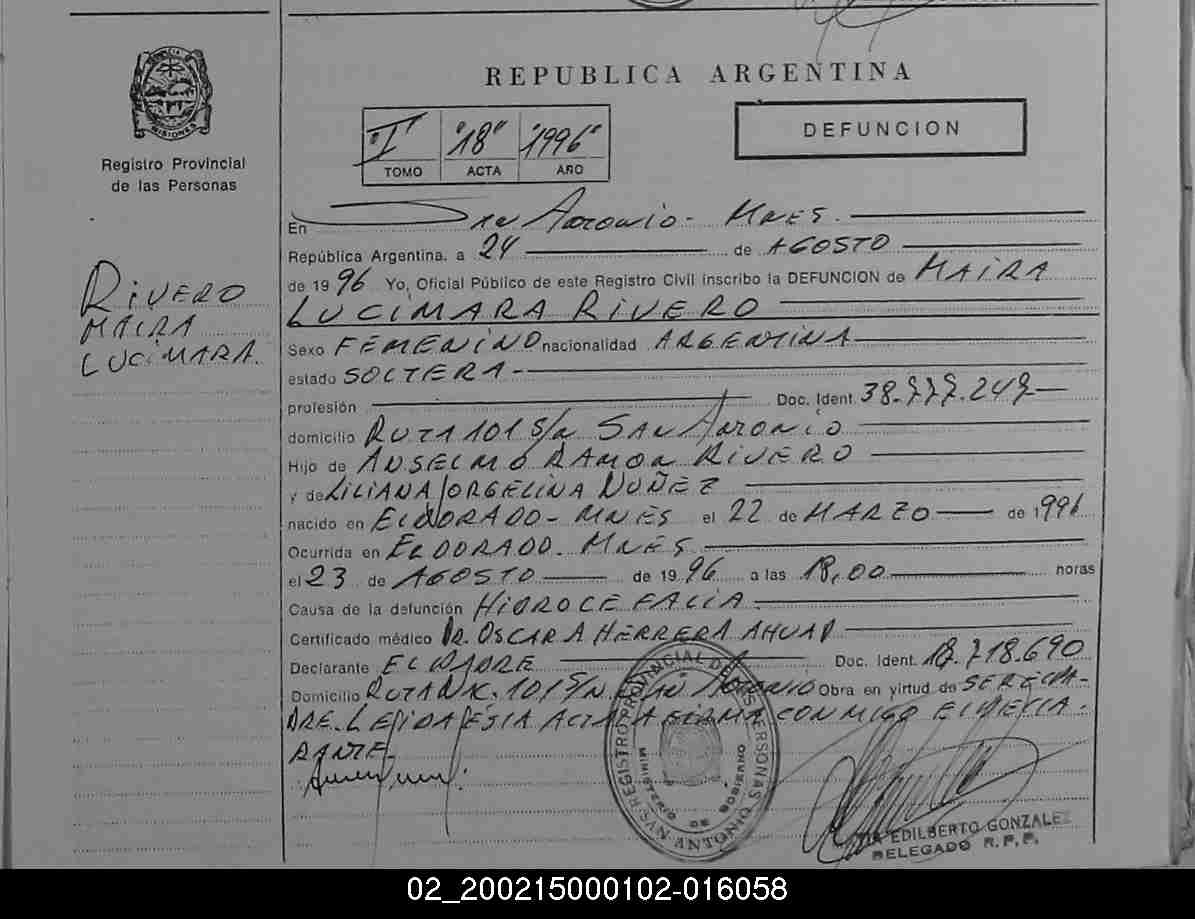 REPUBLICA ARGENTINA
"I" "18" "1996"
TOMO ACTA AÑO
DEFUNCION
MISIONES
Registro Provincial
de las Personas
RIVERO
MAIRA
LUCIMARA.
En San Antonio - Mnes.
República Argentina, a 24 de AGOSTO
de 1996 Yo, Oficial Público de este Registro Civil inscribo la DEFUNCION de MAIRA
LUCIMARA RIVERO
Sexo FEMENINO nacionalidad ARGENTINA
estado SOLTERA -
profesión Doc. Ident. 38.777.247
domicilio RUTA 101 S/n SAN Antonio
Hijo de ANSELMO RAMON RIVERO
y de LILIANA JORGELINA NUÑEZ
nacido en ELDORADO - MNES el 22 de MARZO de 1996
Ocurrida en ELDORADO. MNES.
el 23 de AGOSTO de 1996 a las 18,00 horas
Causa de la defunción HIDROCEFALIA.
Certificado médico Dr. OSCAR A HERRERA AHUAD
Declarante EL PADRE Doc. Ident. 18.718.690
Domicilio RUTA NK. 101 S/N SAN Antonio Obra en virtud de SER EL PA-
DRE. LEIDA ESTA ACTA LA FIRMA CONMIGO EL DECLA-
RANTE -
REGISTRO PROVINCIAL DE LAS PERSONAS
MINISTERIO DE GOBIERNO
SAN ANTONIO
EDILBERTO GONZALEZ
DELEGADO R.P.P.
02_200215000102-016058